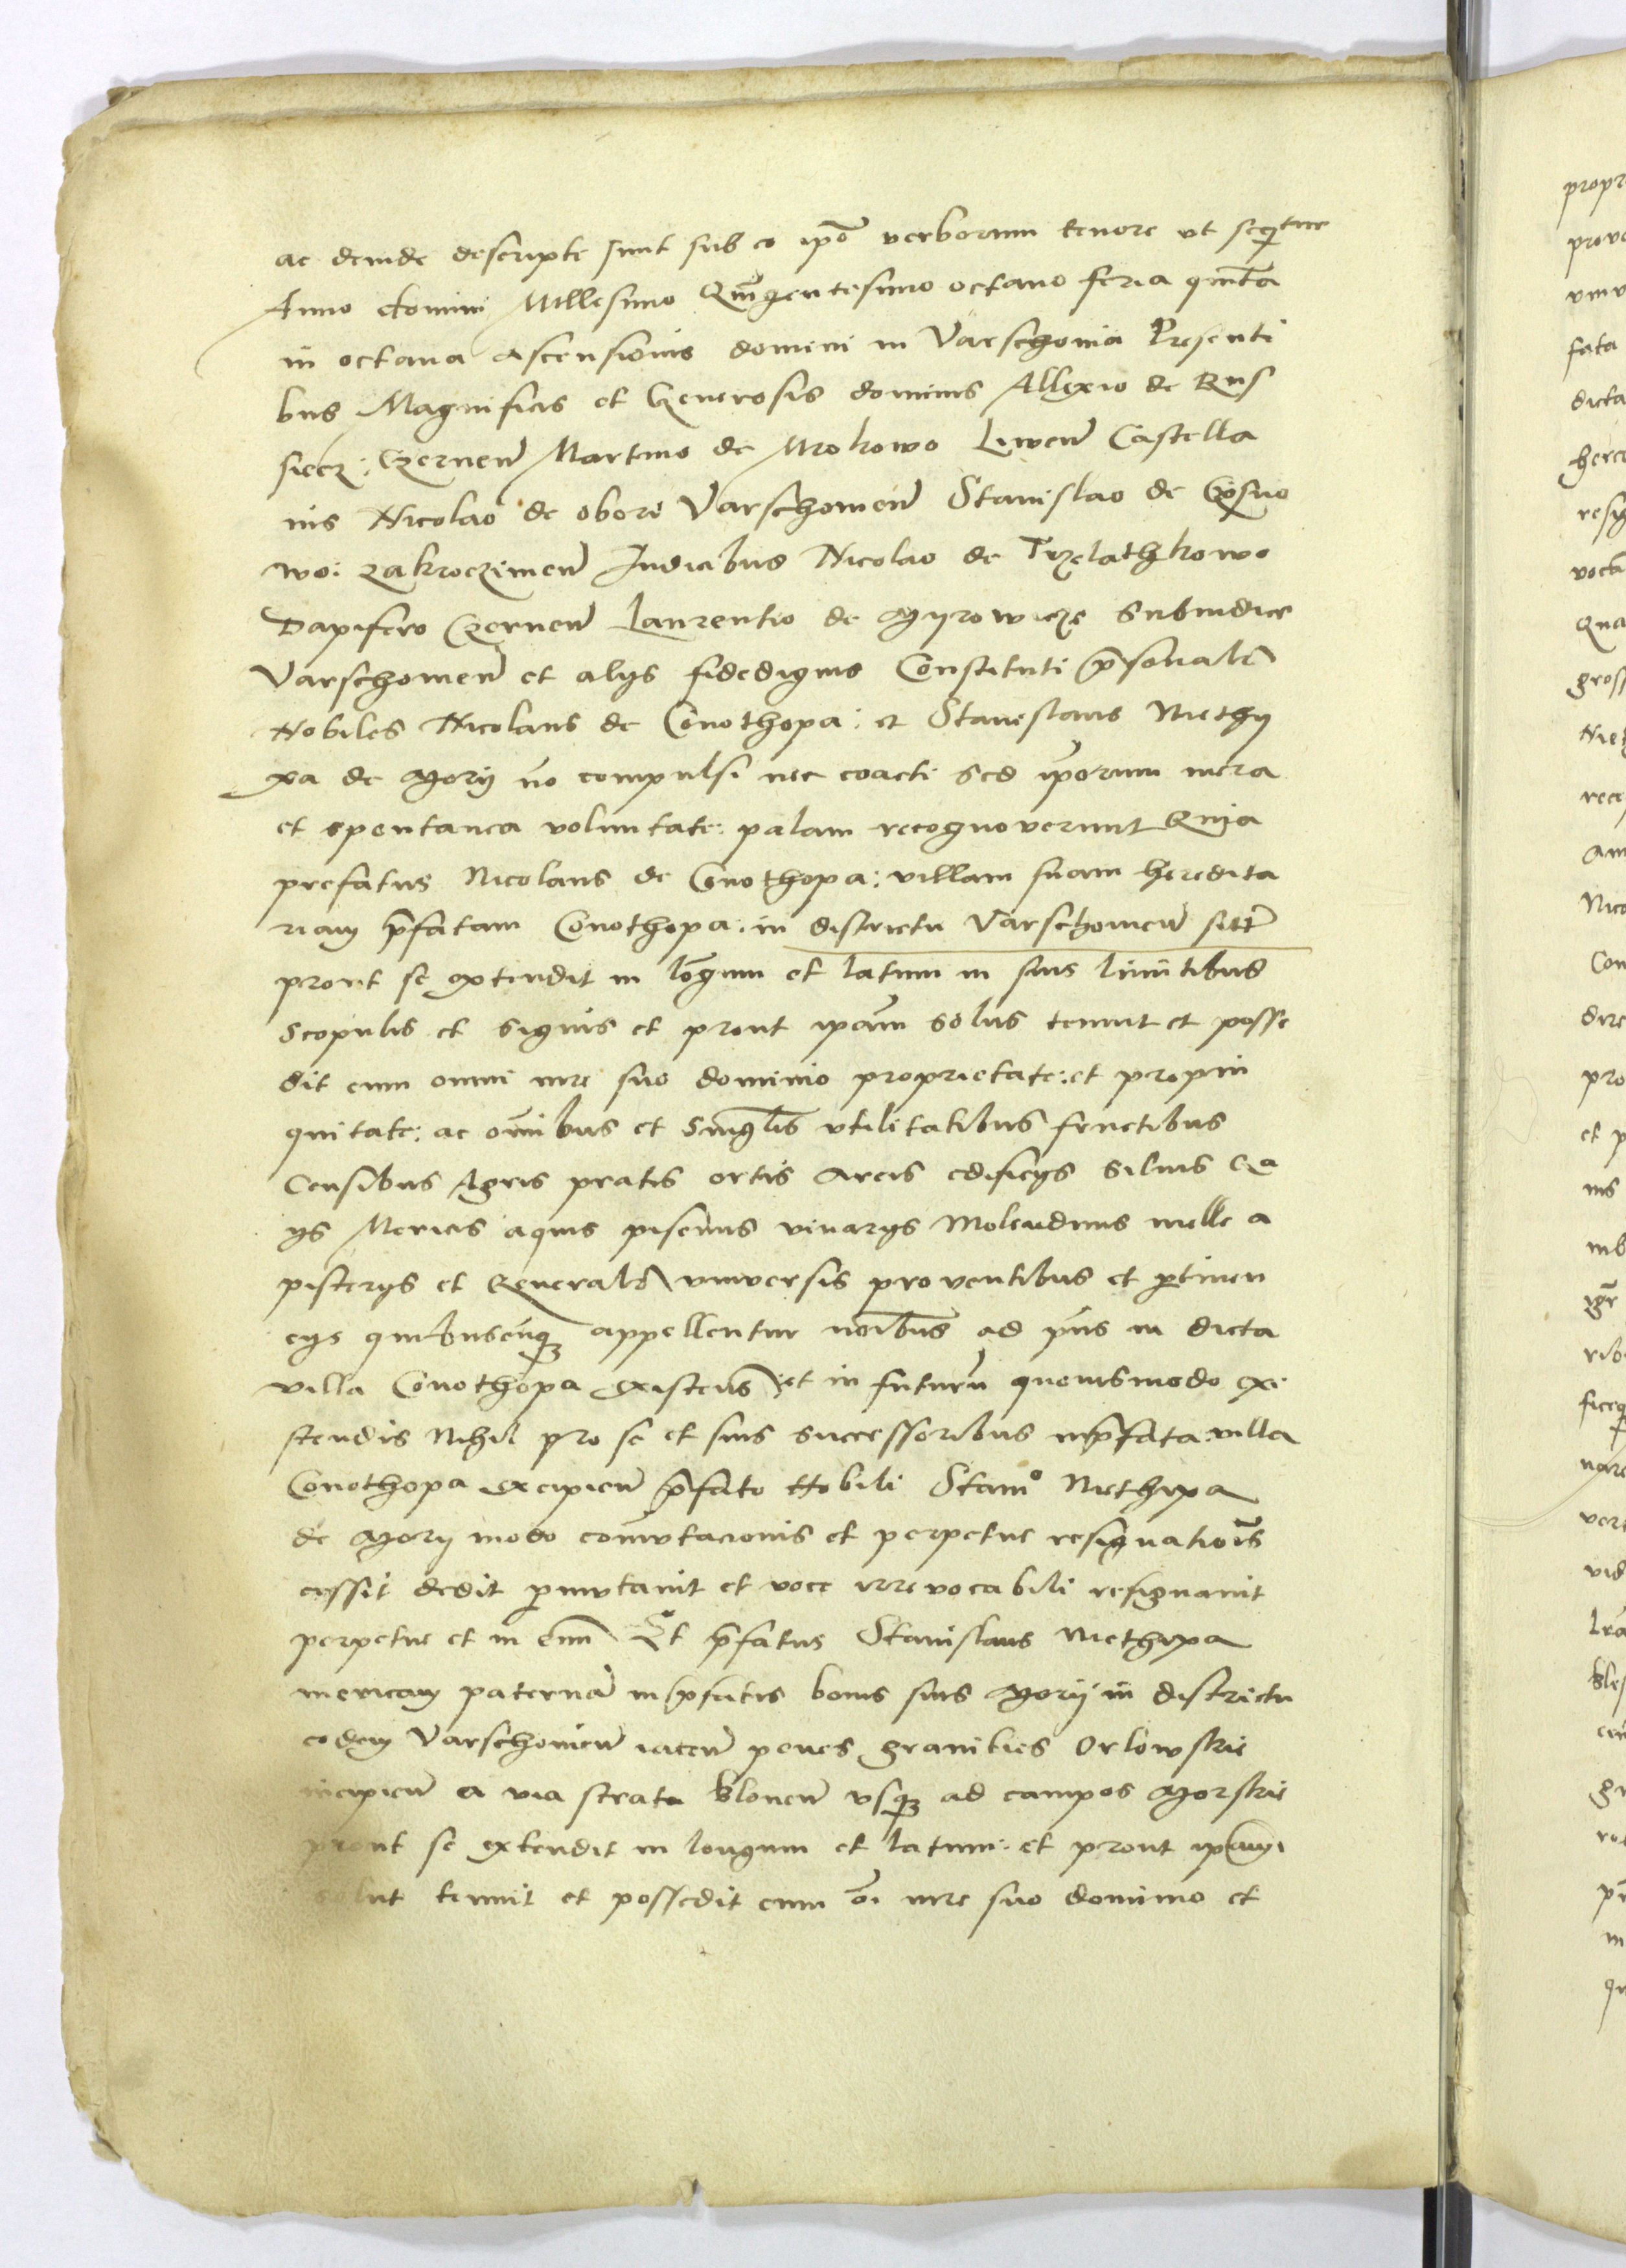 ac deinde descripte sunt sub eo ipō verborum tenore ut seqitur
Anno domini Millesimo Quīgentesimo octavo feria quīta
in octava Ascensionis domini in Varschovia Presenti
bus Magnificis et Generosis dominis Allexio de Rus
siecz: Czernen̄ Martino de Mrokowo Liwen̄ Castella
nis Nicolao de obori Varschovien̄ Stanislao de
wo: zakroczimen̄ Iudicibus Nicolao de Trzelathkowo
Dapifero Czernen̄ Laurentio de Gyrowicze Subiudice
Varschovien̄ et alijs fidedignis Constituti p̄sonalr̄
Nobiles Nicolaus de Conothopa: et Stanislaus Niethy
xa de Gorij nō compulsi nec coacti sed ip̄orum mera
et spontanea voluntate: palam recognoverunt Quia
prefatus Nicolaus de Conothopa: villam suam heredita
riam p̄fatam Conothopa: in districtu Varschovien̄ sitt̄
prout se extendit in lōgum et latum in suis limitibus
Scopulis et signis et prout ipām solus tenuit et posse
dit cum omni iure suo dominio proprietate: et propin
quitate: ac om̄ibus et singl̄is utilitatibus fructibus
Censibus Agris pratis ortis Areis edificijs silvis Ga
ijs Mericis aquis piscinis vivarijs Molendinis melle a
pisterijs et Generalr̄ universis proventibus et p̄tinen
cijs quibuscunq appellentur noībus ad p̄ns in dicta
villa Conothopa existen̄ et in futurū quovismodo exi
stendis Nihil pro se et suis successoribus in p̄fata villa
Conothopa excipien̄ p̄fato Nobili Stanᵒ Niethixa
de Gorij modo com̄utacionis et perpetue resignatiōis
cessit dedit p̄mutavit et voce irrevocabili resignavit
perpetue et in evū Et p̄fatus Stanislaus Niethixa
mericam paternā in p̄fatis bonis suis Gorij in districtu
eodem Varschovien̄ iacen̄ penes granities Orlowskie
incipien̄ a via strata Blonen̄ usq ad campos Gorskie
prout se extendit in longum et latum: et prout ipam
solus tenuit et possedit cum oī iure suo dominio et